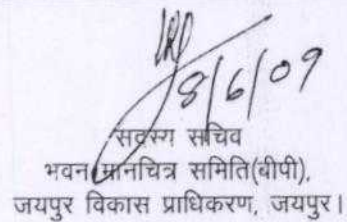 8/6/09
सदस्य सचिव
भवन मानचित्र समिति(बीपी),
जयपुर विकास प्राधिकरण, जयपुर।